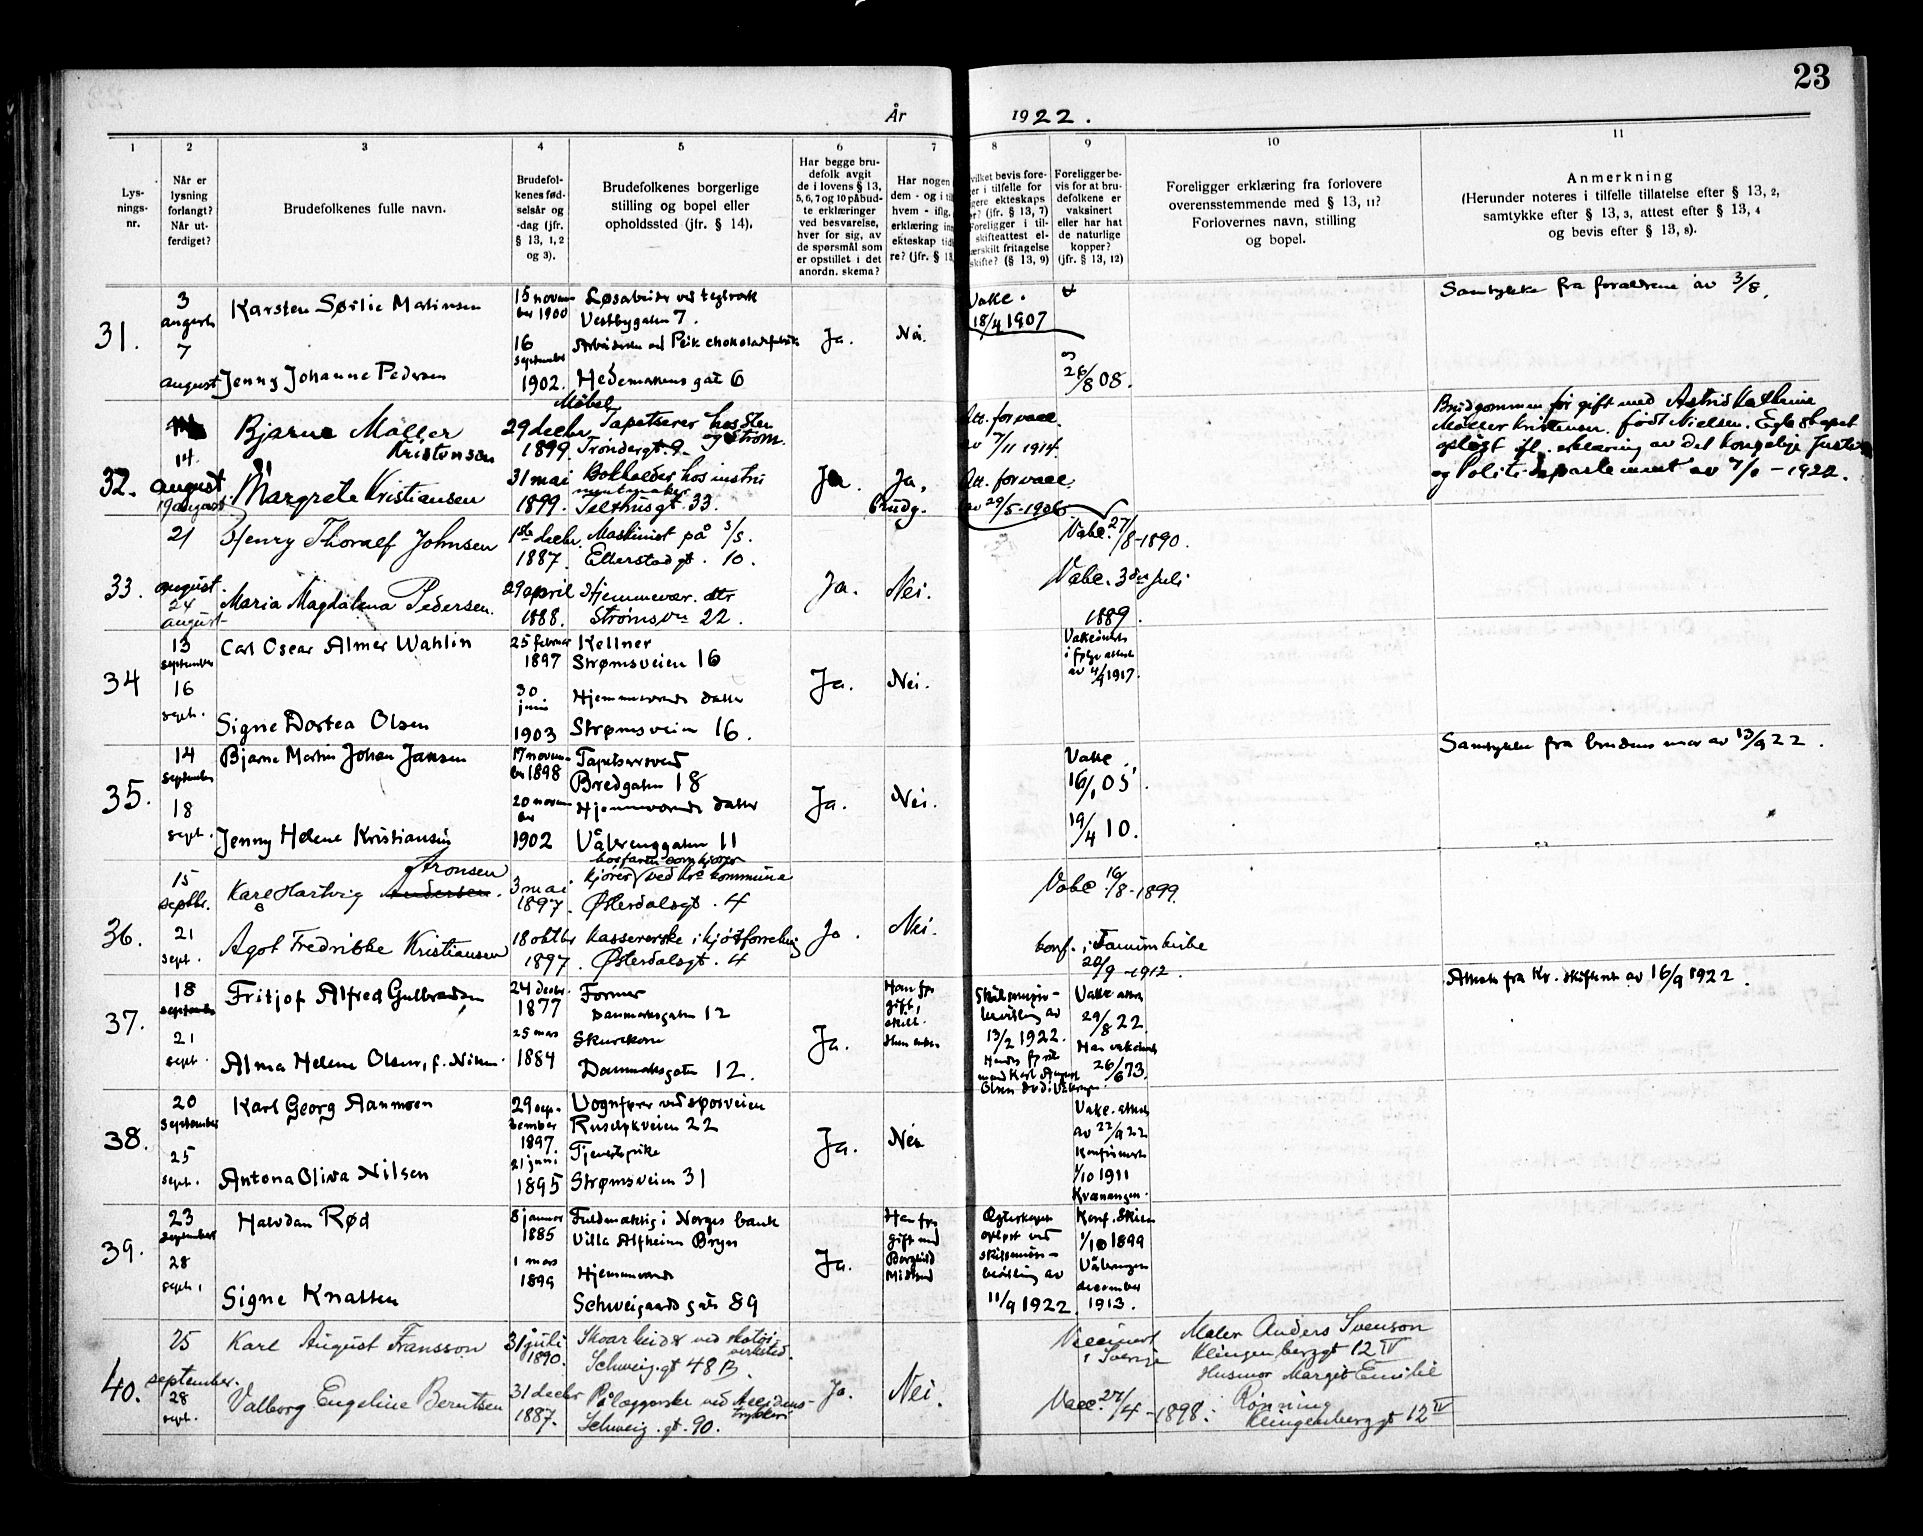 23
År 1922.
1 2 3 4 5 6 7 8 9 10 11
Lys-
nings-
nr.
Når er
lysning
forlangt?
Når ut-
ferdiget?
Brudefolkenes fulle navn.
Brudefol-
kenes fød-
selsår og
-dag (jfr.
§ 13, 1, 2
og 3).
Brudefolkenes borgerlige
stilling og bopel eller
opholdssted (jfr. § 14).
Har begge bru-
defolk avgit
de i lovens § 13,
5, 6, 7 og 10 påbud-
te erklæringer
ved besvarelse,
hver for sig, av
de spørsmål som
er opstillet i det
anordn. skema?
Har nogen
dem - og i ti
hvem - iflg.
erklæring in
ekteskap tid
re? (jfr. § 13
vilket bevis fore-
ger i tilfelle for
gere ekteskaps
r? (jfr. § 13, 7)
Foreligger i til-
skifteattest el-
ærskilt fritagelse
skifte? (§ 13, 9)
Foreligger be-
vis for at bru-
defolkene er
vaksinert
eller har hat
de naturlige
kopper?
(jfr. § 13, 12)
Foreligger erklæring fra forlovere
overensstemmende med § 13, 11?
Forlovernes navn, stilling
og bopel.
Anmerkning
(Herunder noteres i tilfelle tillatelse efter § 13, 2,
samtykke efter § 13, 3, attest efter § 13, 4
og bevis efter § 13, 8).
31.
3
7
august
Karsten Sørlie Matinsen
Jenny Johanne Pedersen
15 novem-
ber 1900
16
september
1902.
Løsarbeider ved teglverk
Vestbygaten 7.
Arbeiderske ved Peik chokoladefabrik
Hedemarkens gate 6
Ja.
Nei.
Vakc.
18/4 1907
26/8 08.
Samtykke fra forældrene av 3/8.
32.
14
august
19 august
Bjarne Møller
Kristensen
Margrete Kristiansen
29 decbr
1899.
31 mai
1899.
Møbel
Tapetserer hos Sten
og Strøm.
Trondergt. 9
Bokholder hos instru
mentmaker
Telthusgt. 33.
Ja.
Ja,
Brudg.
Att. for vacc.
av 7/11 1914.
Att. for vacc.
av 29/5-1906
Brudgommen før gift med Astrid Kathrine
Møller Kristensen født Nielsen. Egteskapet
opløst ifl. erklæring av det kongelige Justis
og Politidepartement av 7/1 - 1922.
33.
21
august.
24
august
Henry Thoralf Johnsen
Maria Magdalena Pedersen.
1ste decbr.
1887.
29 april
1888.
Maskinist på S/S.
Etterstadgt. 10.
Hjemmevær. dtr
Strømsvn 22.
Ja.
Nei.
Vakc. 27/8-1890.
Vakc. 3die juli
1889.
34
13
september
16
sept.
Carl Oscar Almer Wahlin
Signe Dortea Olsen
25 februar
1897
30
juni
1903
Kellner
Strømsveien 16
Hjemmeværende datter
Strømsveien 16.
Ja.
Nei.
Vaksinert
i følge attest
av 4/9 1917.
35.
14
september
18
sept.
Bjarne Martin Johan Jansen
Jenny Helene Kristiansen
17 novem-
ber 1898
20 novem
ber
1902
Tapetserersvend
Bredgaten 18
Hjemmeværende datter
Vålerenggaten 11
Ja.
Nei.
Vakc.
16/1 05.
19/4 10.
Samtykke fra brudens mor av 13/9 22.
36.
15
septbr.
21
sept.
Aronsen
Karl Hartvig Andersen.
Agot Fredrikke Kristiansen
3 mai
1897.
18 oktbr
1897.
kjører ved Kra kommune
Østerdalsgt. 4
kassererske i kjøtforretning
Østerdalsgt. 4
Ja.
Nei.
Vakc. 16/8-1899.
konf. i
20/9-1912.
37.
18
september
21
sept.
Fritjof Alfred Gulbrandsen
Alma Helene Olsen, f. Nilsen
24 decbr.
1877
25 mars
1884
Former
Danmarksgaten 12
Skurekone
Danmarksgaten 12.
Ja.
Han før
gift,
skilt.
Hun enke
Skilsmisse-
bevilling av
13/2 1922.
Hendes første
mand Karl August
Olsen død i Vålerengen
Vakc. attest
29/8 22.
Har vaksinert
26/6 73.
Attest fra Kr. skifteret av 16/9 1922.
38.
20
september
25
sept.
Karl Georg Aanmoen
Antona Oliva Nilsen
29 sep-
tember
1897
21 juni
1895
Vognfører ved sporveien
Ruseløkveien 22
Tjenestepike
Strømsveien 31
Ja.
Nei
Vakc. attest
av 22/9 22
Konfirmert
1/10 1911
Kvænangen.
39.
23
september
28
sept.
Halvdan Rød
Signe Knatten
8 januar
1885
1 mars
1899
Fuldmæktig i Norges bank
Villa Alfheim Bryn
Hjemmeværende
Schweigaards gate 89
Ja.
Han før
gift med
Borghild
Midttund
Egteskapet
opløst ved
skilsmisse-
bevilling av
11/9 1922.
Konf. Skien
1/10 1899
Vålerengen
december
1913.
40.
25
september.
28
sept.
Karl August Fransson
Valborg Engeline Berntsen
31 juli
1890.
31 decbr
1887.
Skoarbeider ved skotøi-
virksted.
Schweig.gt 48 B.
Pålæggerske ved Accidens-
trykkeri
Schweig.gt. 90.
Ja.
Nei
Vaccinert
i Sverige
Vacc. 27/4-1898.
Maler Anders Svenson
Klingenberggt 12 IV
Husmor Margit Emilie
Rønning
Klingenberggt 12 IV